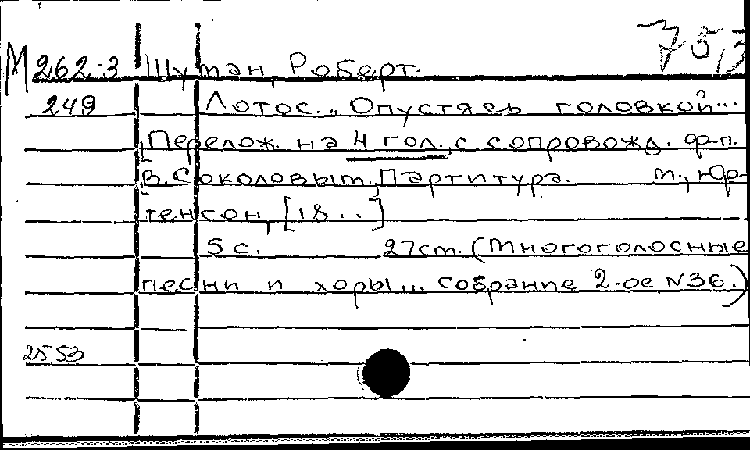 75,3
М 262-3 Шуман, Роберт.
249 Лотос. „Опустясь головкой"...
[Перелож. на 4 гол. с сопровожд. ф-п.
В. Соколовым. Партитура. М., Юр-
генсон, [18..]
5 с. 27 cm. (Многоголосные
песни и хоры... Собрание 2-ое N 36.)
2553